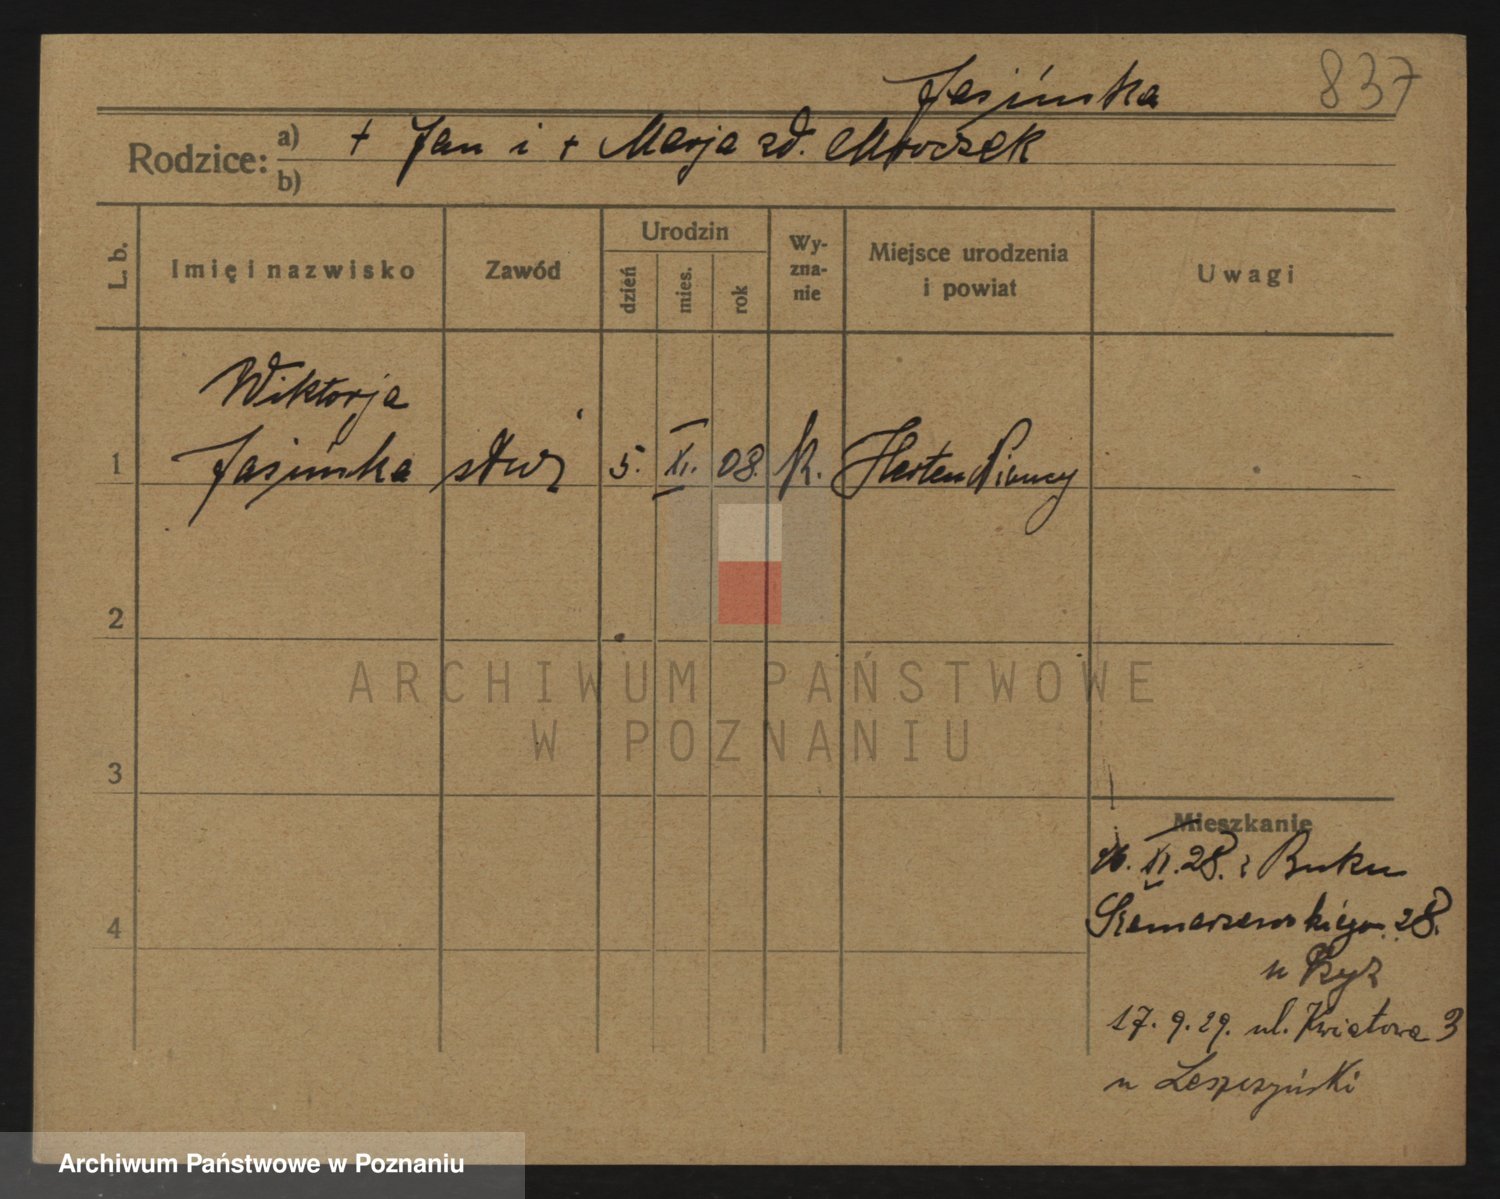 837
Jasińska
Rodzice: a) + Jan i + Marja zd. Mroczek
b)
L. b.
Imię i nazwisko
Zawód
Urodzin
dzień
mies.
rok
Wy-
zna-
nie
Miejsce urodzenia
i powiat
Uwagi
Wiktorja
1 Jasińska służ 5. XI. 08. k. Herten Niemcy
2
ARCHIWUM PAŃSTWOWE
W POZNANIU
3
Mieszkanie
XI. 28. z Buku
4
Szamarzewskiego 28.
u
17. 9. 29. ul. Kwiatowa 3
u Leszczyński
Archiwum Państwowe w Poznaniu